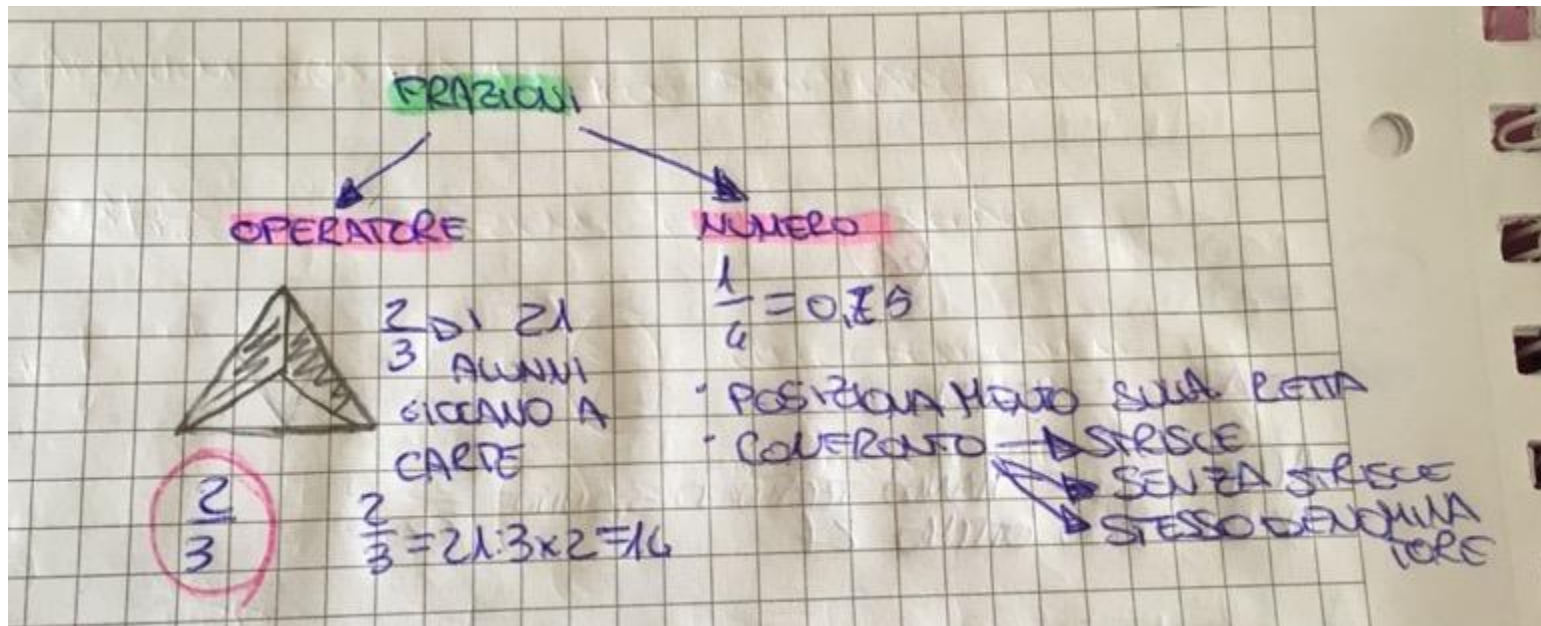 FRAZIONI
OPERATORE
2/3 DI 21
ALUNNI
GIOCANO A
CARTE
2/3
2/3 = 21:3x2=14
NUMERO
1/4 = 0,25
· POSIZIONAMENTO SULLA RETTA
· CONFRONTO → STRISCE
SENZA STRISCE
STESSO DENOMINA
TORE